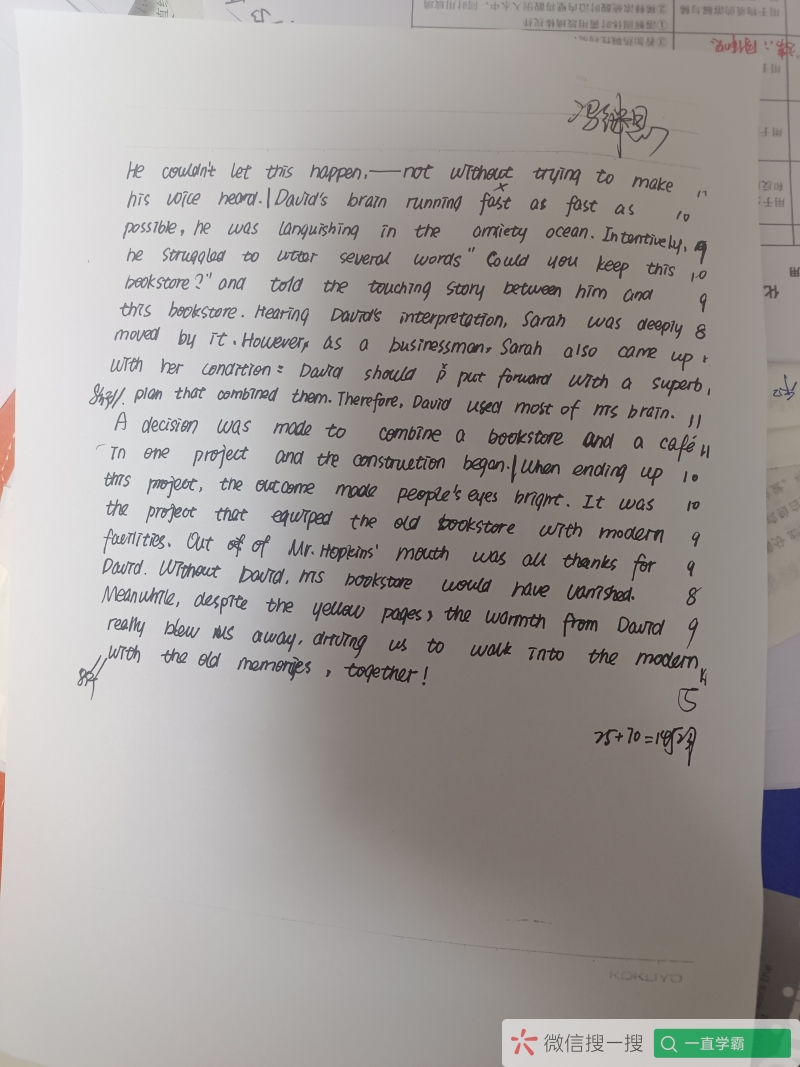 用于物质的溶解与稀
②稀释浓硫酸时应沿内壁将酸倒入水中，同时用玻璃
①溶解固体时需用玻璃棒搅拌
用于
用于
He couldn't let this happen,——not without trying to make 11
his voice heard.| David's brain running fast as fast as 10
possible, he was languishing in the anxiety ocean. Intentively, 9
he struggled to utter several words" Could you keep this 10
bookstore?" and told the touching story between him and 9
this bookstore. Hearing David's interpretation, Sarah was deeply 8
moved by it. However, as a businessman, Sarah also came up
with her condition: David should p put forward with a superb
plan that combined them. Therefore, David used most of his brain. 11
A decision was made to combine a bookstore and a café 11
In one project and the construction began.| When ending up 10
this project, the outcome made people's eyes bright. It was 10
the project that equiped the old bookstore with modern 9
faerlities. Out of of Mr. Hopkins' mouth was all thanks for 9
David. Without David, his bookstore would have vanished. 8
Meanwhile, despite the yellow pages, the warmth from David 9
really blew us away, driving us to walk into the modern
with the old memories, together! 5
75+70=145词
KOKUYO
微信搜一搜
一直学霸